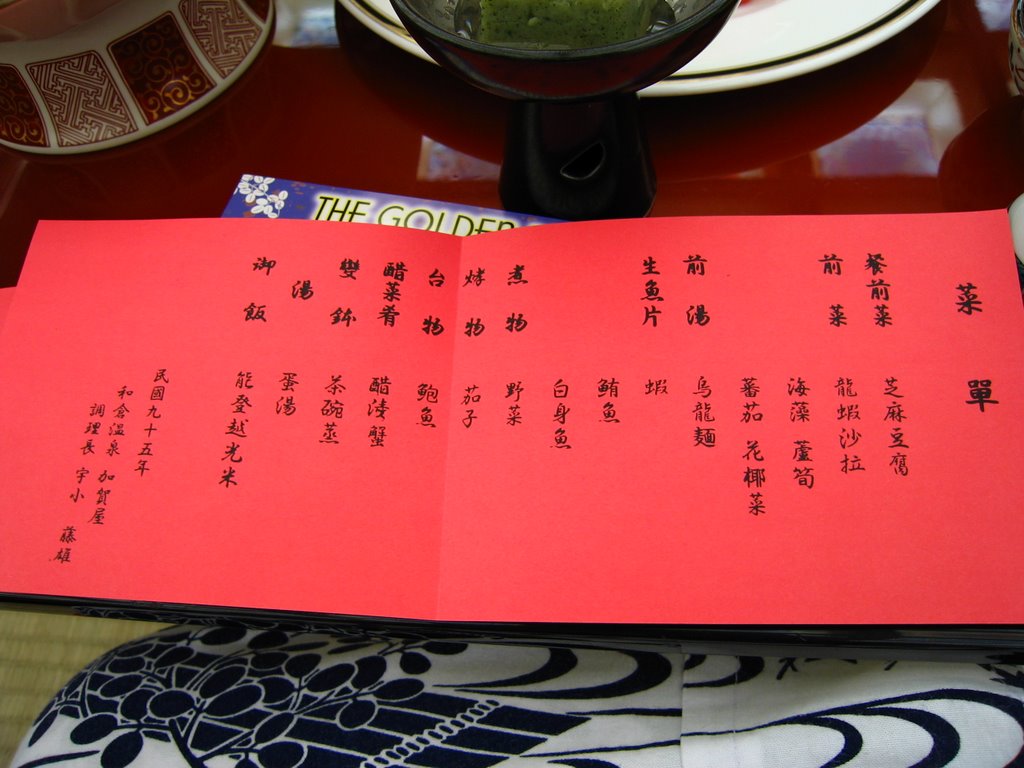 THE GOLDEN
菜單
餐前菜 芝麻豆腐
前菜 龍蝦沙拉
海藻 蘆筍
蕃茄 花椰菜
前湯 烏龍麵
生魚片 蝦
鮪魚
白身魚
煮物 野菜
烤物 茄子
台物 鮑魚
醋菜肴 醋漬蟹
變鉢 茶碗蒸
湯 蛋湯
御飯 能登越光米
民國九十五年
和倉溫泉 加賀屋
調理長 宇小 藤雄